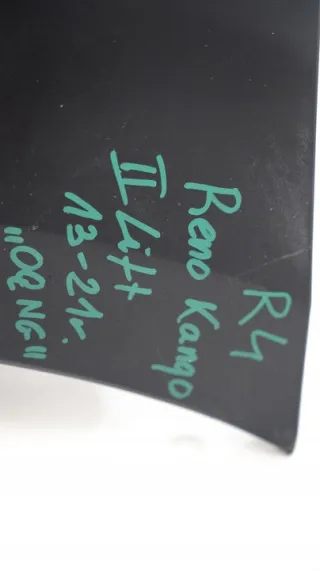 R4
Reno Kango
II Lift
13-21r.
"OE NG"